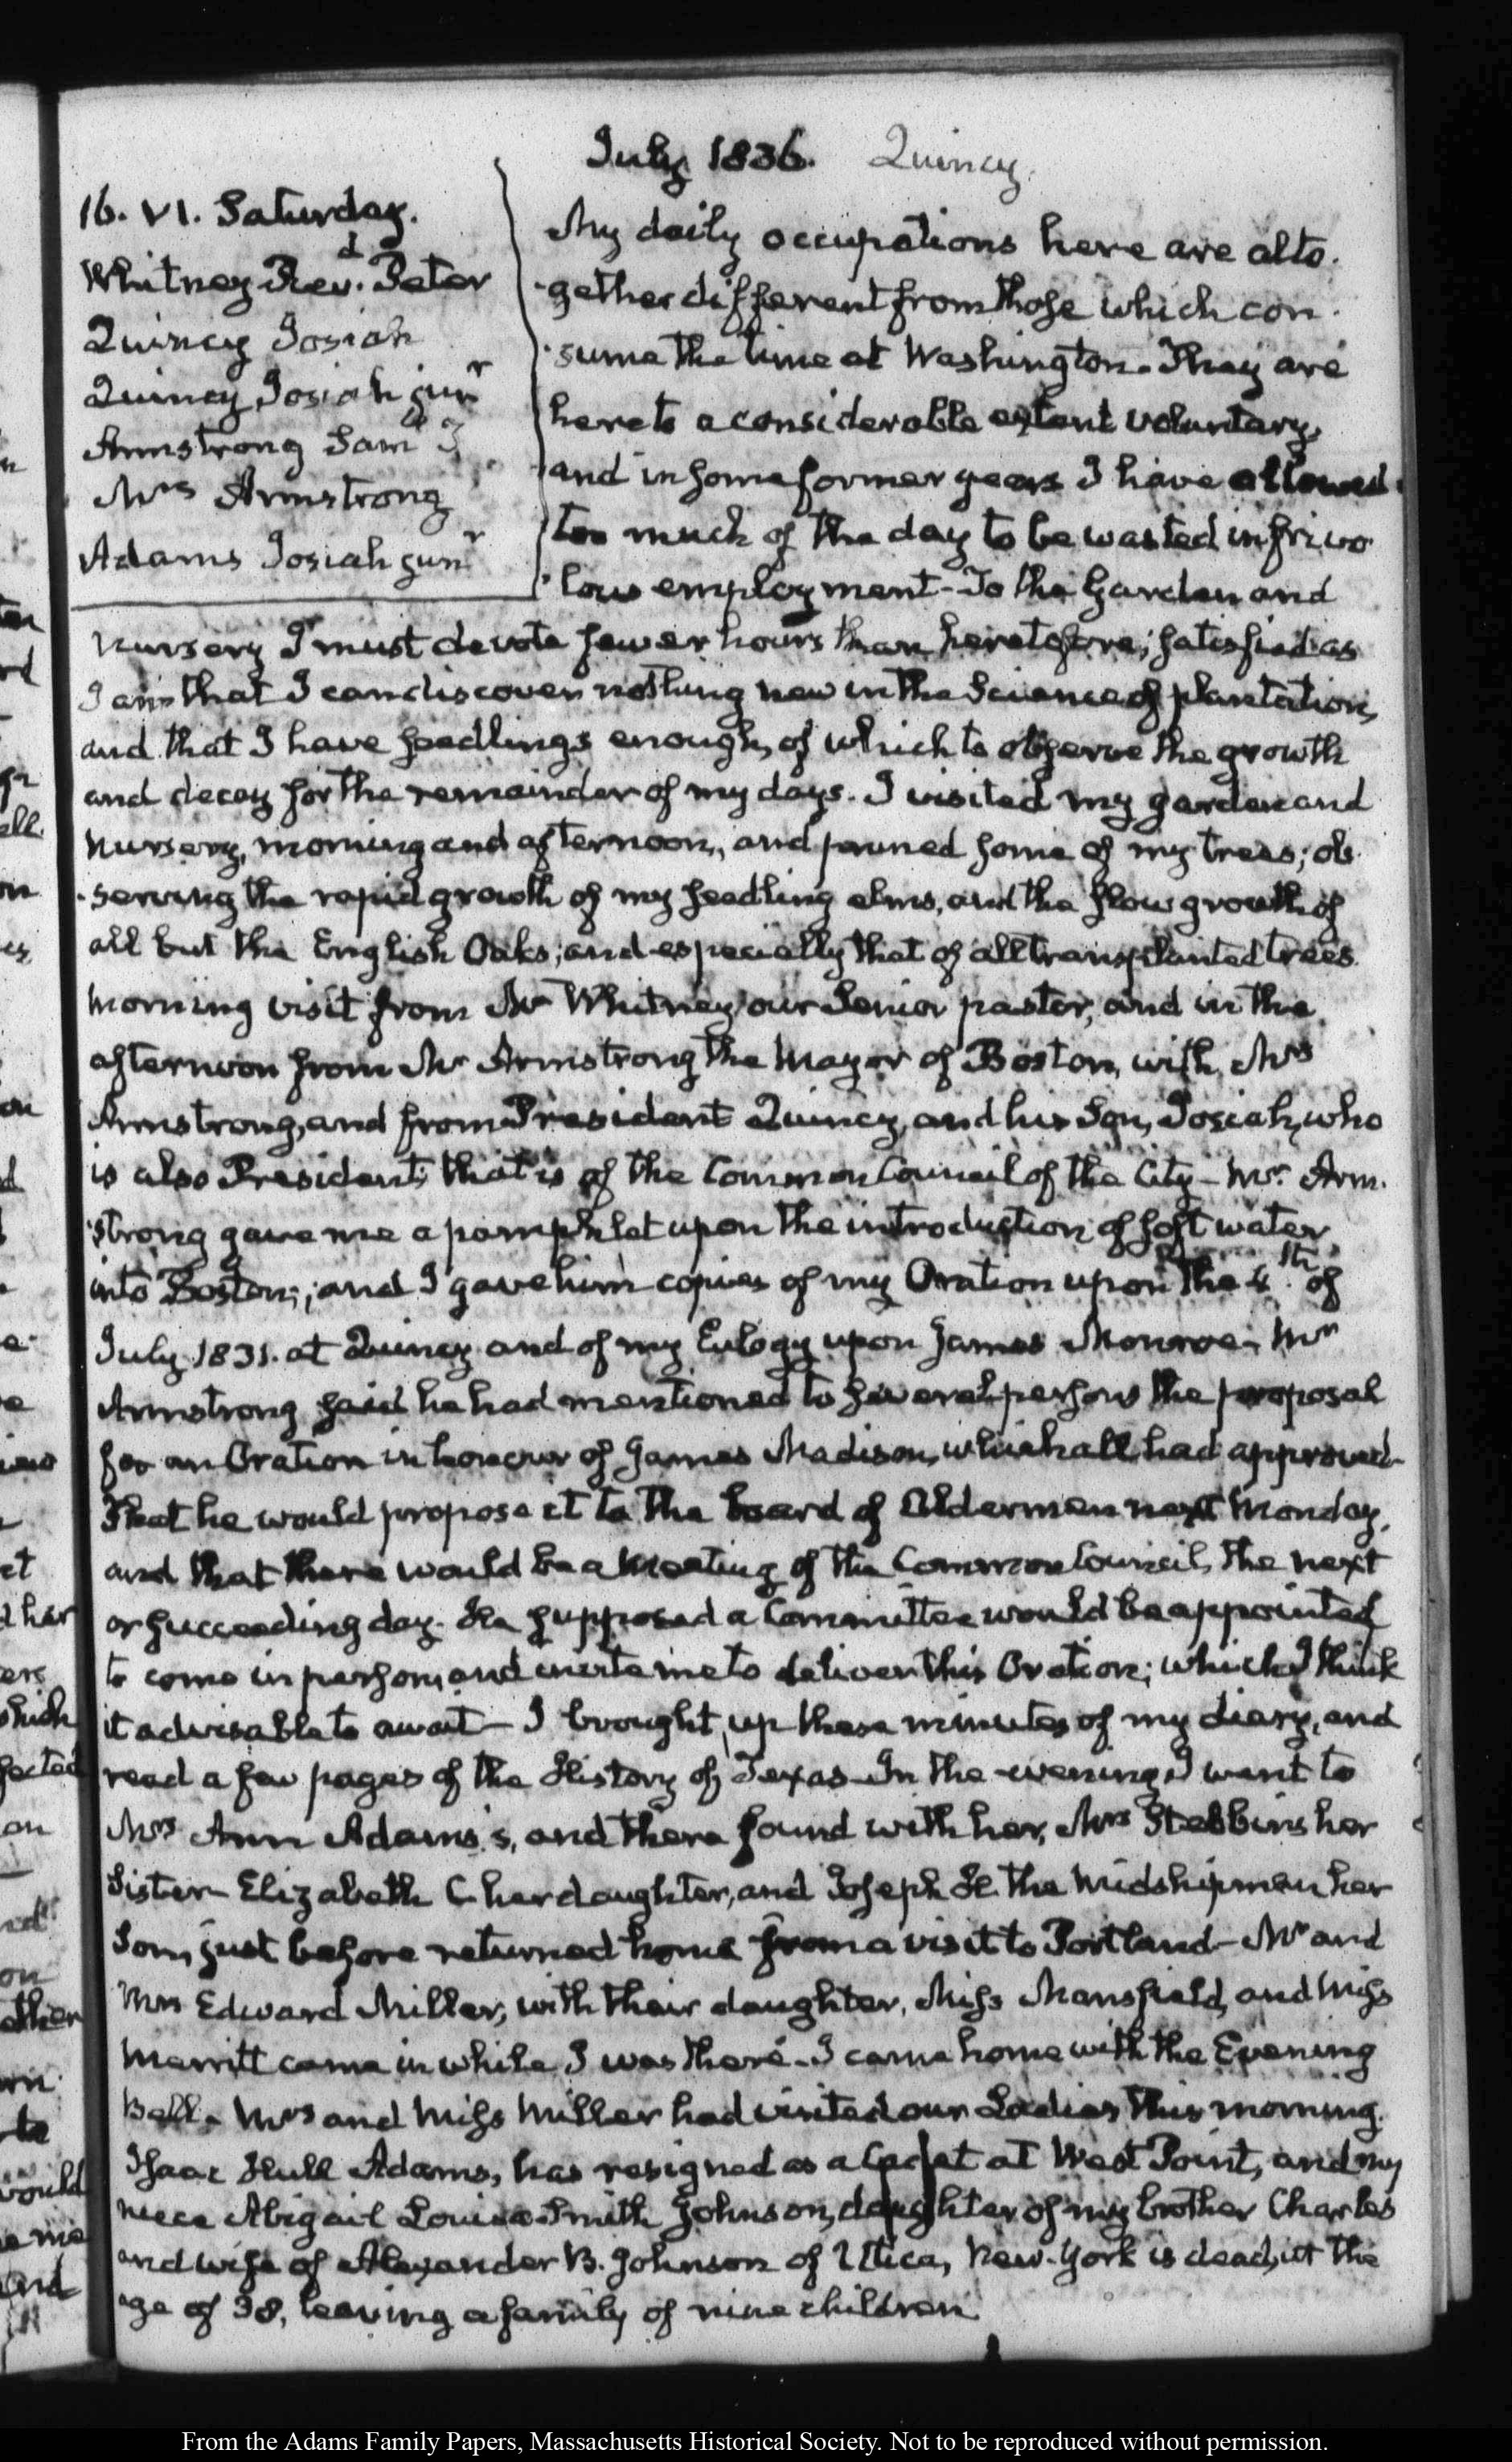 July 1836. Quincy.
16. VI. Saturday.
Whitney Rev.d Peter
Quincy Josiah
Quincy Josiah junr
Armstrong Sam T
Mrs Armstrong
Adams Josiah junr
My daily occupations here are alto-
-gether different from those which con-
-sume the time at Washington. They are
here to a considerable extent voluntary,
and in some former years I have allowed
too much of the day to be wasted in frivo-
-lous employment- To the Garden and
Nursery I must devote fewer hours than heretofore; satisfied as
I am that I can discover nothing new in the Science of plantation,
and that I have seedlings enough, of which to observe the growth
and decay for the remainder of my days. I visited my garden and
Nursery, morning and afternoon, and pruned some of my trees; ob-
-serving the rapid growth of my seedling elms, and the slow growth of
all but the English Oaks; and especially that of all transplanted trees.
Morning visit from Mr Whitney our Senior pastor, and in the
afternoon from Mr Armstrong the Mayor of Boston, with Mrs
Armstrong, and from President Quincy, and his Son, Josiah, who
is also President; that is of the Common Council of the City- Mr. Arm-
-strong gave me a pamphlet upon the introduction of soft water
into Boston; and I gave him copies of my Oration upon the 4th. of
July 1831. at Quincy and of my Eulogy upon James Monroe- Mr
Armstrong said he had mentioned to several persons the proposal
for an Oration in honour of James Madison, which all had approved-
That he would propose it to the board of Aldermen next Monday,
and that there would be a Meeting of the Common Council, the next
or succeeding day. He supposed a Committee would be appointed
to come in person, and invite me to deliver this Oration; which I think
it advisable to await- I brought up these minutes of my diary, and
read a few pages of the History of Texas- In the evening I went to
Mrs Ann Adams's, and there found with her, Mrs Stebbins her
Sister- Elizabeth C her daughter, and Joseph H. the Midshipman her
Son, just before returned home from a visit to Portland- Mr and
Mrs Edward Miller, with their daughter, Miss Mansfield, and Miss
Merritt came in while I was there- I came home with the Evening
Bell- Mrs and Miss Miller had visited our Ladies this morning.
Isaac Hull Adams, has resigned as a Cadet at West Point, and my
niece Abigail Louisa Smith Johnson, daughter of my brother Charles
and wife of Alexander B. Johnson of Utica, New-York is dead, at the
age of 38, leaving a family of nine children.
From the Adams Family Papers, Massachusetts Historical Society. Not to be reproduced without permission.